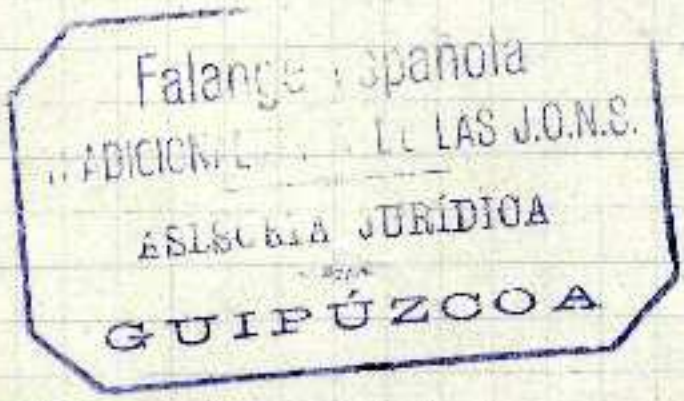 Falange Española
TRADICIONALISTA Y DE LAS J.O.N.S.
ASESORÍA JURÍDICA
GUIPÚZCOA